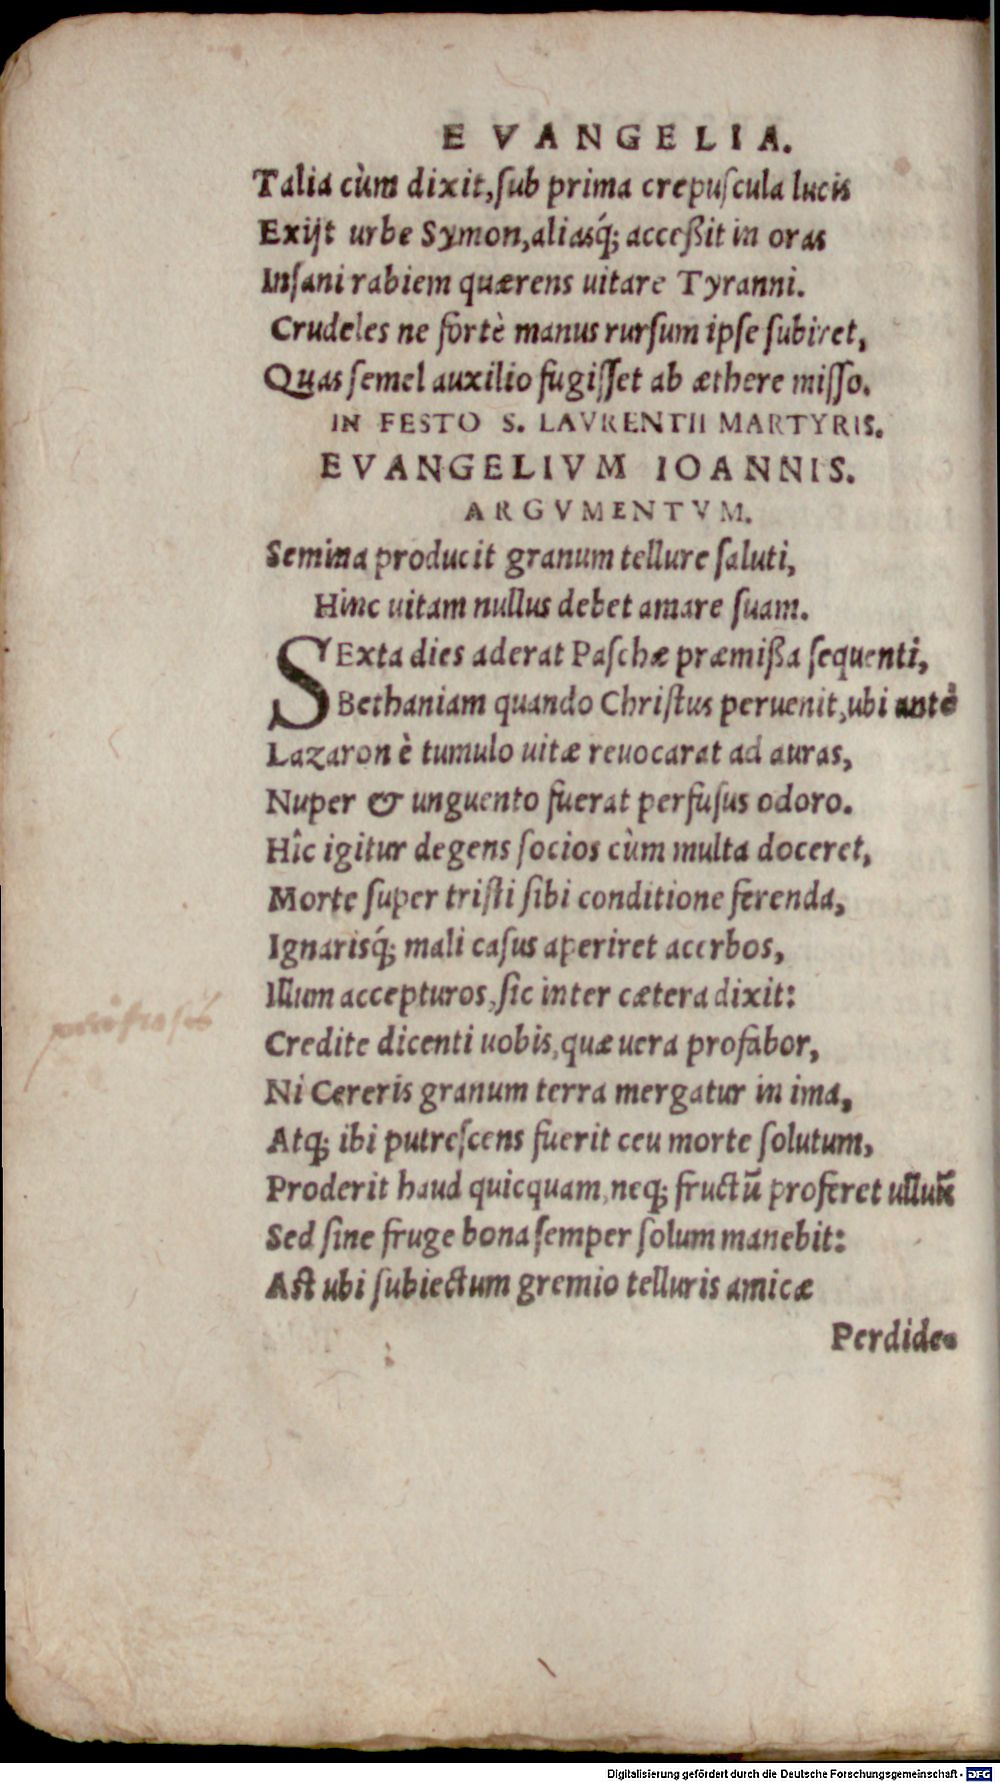 EVANGELIA.
Talia cùm dixit, ſub prima crepuſcula lucis
Exijt urbe Symon, aliasq́; acceßit in oras
Inſani rabiem quærens uitare Tyranni.
Crudeles ne fortè manus rurſum ipſe ſubiret,
Quas ſemel auxilio fugiſſet ab æthere miſſo.
IN FESTO S. LAVRENTII MARTYRIS.
EVANGELIVM IOANNIS.
ARGVMENTVM.
Semina producit granum tellure ſaluti,
Hinc uitam nullus debet amare ſuam.
SExta dies aderat Paſchæ præmißa ſequenti,
Bethaniam quando Chriſtus peruenit, ubi antè
Lazaron è tumulo uitæ reuocarat ad auras,
Nuper & unguento fuerat perfuſus odoro.
Hîc igitur degens ſocios cùm multa doceret,
Morte ſuper triſti ſibi conditione ferenda,
Ignarisq́; mali caſus aperiret acerbos,
Illum accepturos, ſic inter cætera dixit:
Credite dicenti uobis, quæ uera profabor,
Ni Cereris granum terra mergatur in ima,
Atq; ibi putreſcens fuerit ceu morte ſolutum,
Proderit haud quicquam, neq; fructū proferet ullum
Sed ſine fruge bona ſemper ſolum manebit:
Aſt ubi ſubiectum gremio telluris amicæ
Perdide-
Digitalisierung gefördert durch die Deutsche Forschungsgemeinschaft - DFG